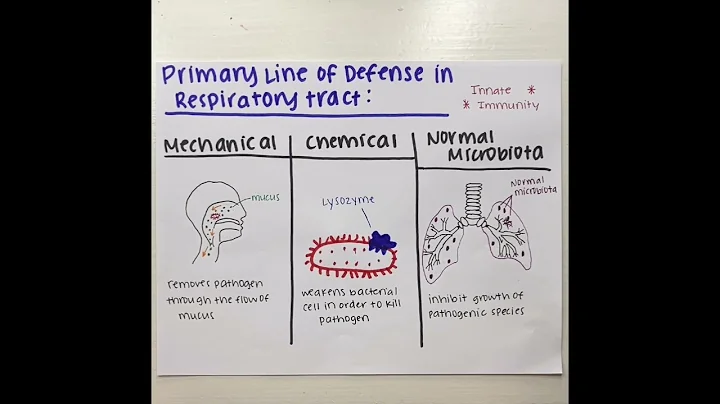 Primary Line of Defense in
Respiratory tract:
Innate *
* Immunity
Mechanical
Chemical
Normal
Microbiota
mucus
Lysozyme
Normal
microbiota
removes pathogen
through the flow of
mucus
weakens bacterial
cell in order to kill
pathogen
inhibit growth of
pathogenic species